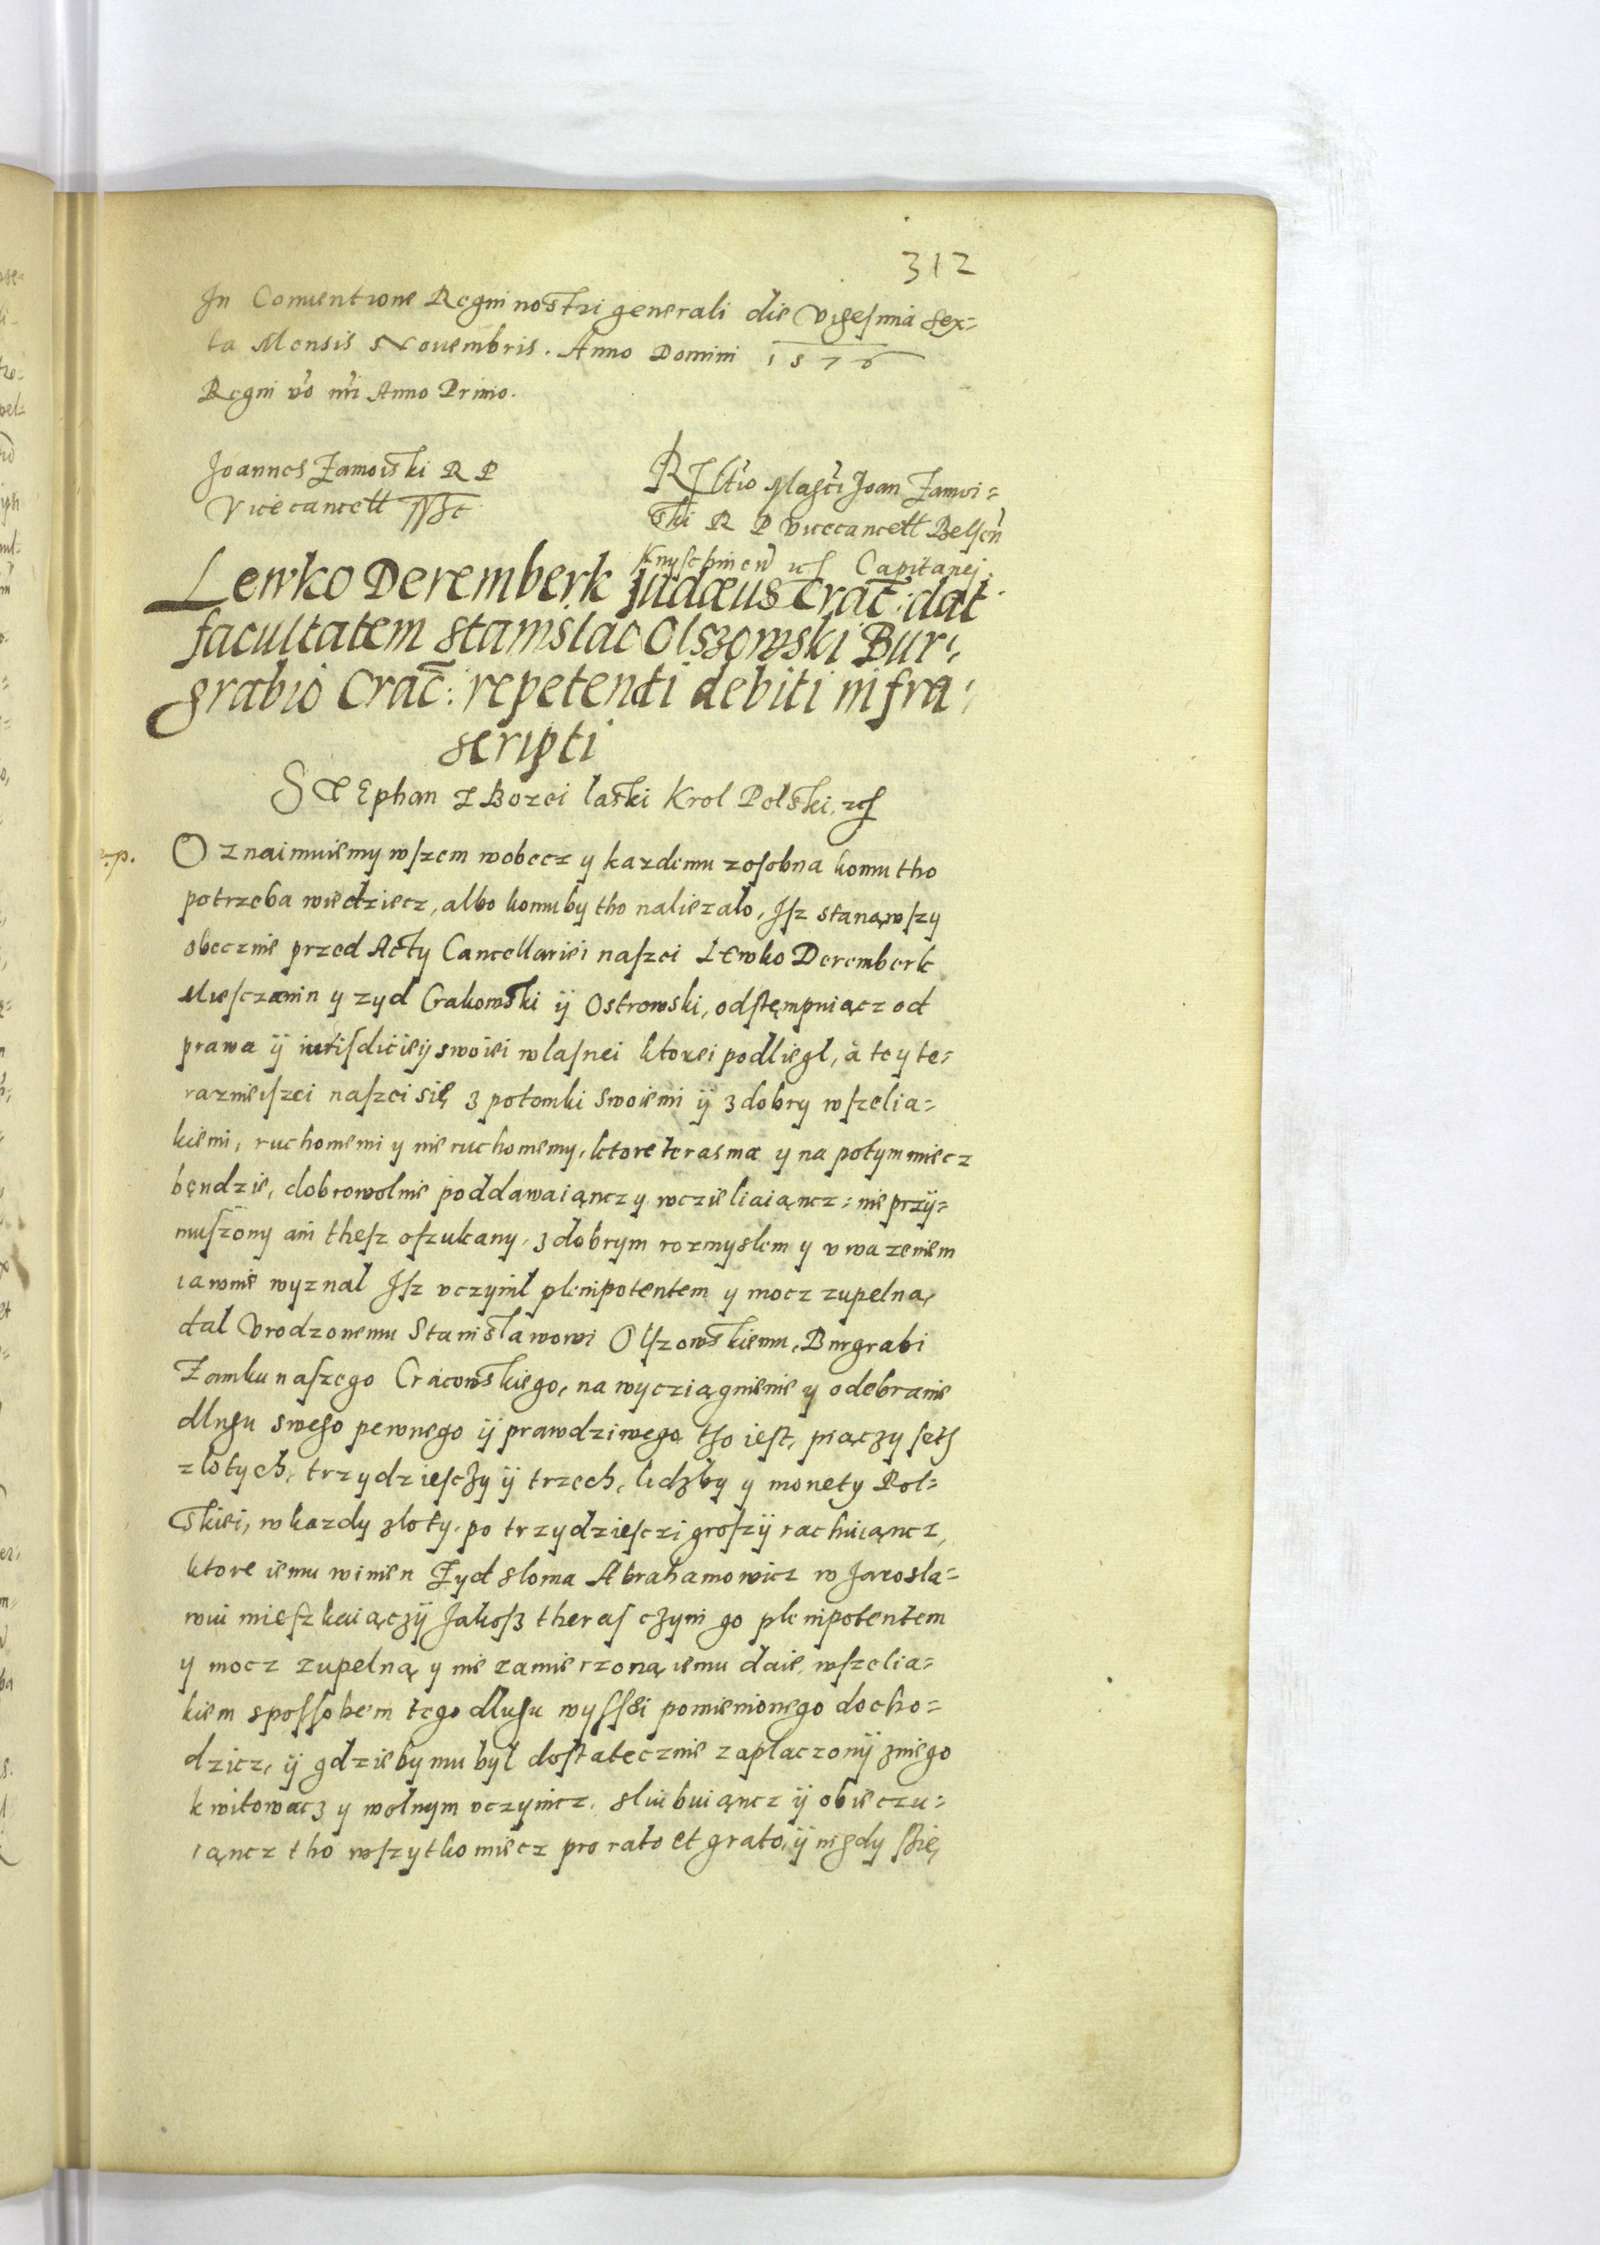 312
In Conuentione Regni nostri generali die Vigesima sex=
ta Mensis Nouembris. Anno Domini 1576
Regni vo nri Anno Primo.
Joannes Zamoiski R P
Vicecancell
Rltio Magci Joan Zamoi=
ski R P Vicecancell Belscn
Knyschinen Capitanej.
Lewko Deremberk Judæus Crac: dat
facultatem Stanislao Olszowski Bur:
grabio Crac: repetendi debiti infra:
scripti
STEphan Z Bozei laski Krol Polski.
Oznaimuiemy wszem wobecz y kazdemu zosobna komu tho
potrzeba wiedziecz, albo komuby tho naliezalo, Isz stanąwszy
obecznie przed Acty Cancellariei naszei Lewko Deremberk
Miesczanin y zyd Crakowski ÿ Ostrowski, odstęmpuiącz od
prawa ÿ iurisdicieÿ swoiei wlasnei ktorei podliegl, a tey te=
razmieiszei naszei się z potomki swoiemi ÿ z dobry wszelia=
kiemi, ruchomemi y nie ruchomemy, ktore teras ma y na potym miecz
będzie, dobrowolnie poddawaiąncz y wczieliaiąncz: nie przÿ=
muszony ani thesz oszukany, z dobrym rozmyslem y vwazeniem
iawnie wyznal Isz vczynil plenipotentem y mocz zupelną
dal Vrodzonemu Stanislawowi Olszowskiemu, Burgrabi
Zamku naszego Cracowskiego, na wycziągnienie y odebranie
dlugu swego pewnego ÿ prawdziwego tho iest, piączy seth
zlotych, trzydziesczy ÿ trzech, liczby y monety Pol=
skiei, w kazdy zloty, po trzydziesczi groszÿ rachuiąncz,
ktore iemu winien Zyd Sloma Abrahamowicz w Jarosla=
wiu mieszkaiączÿ Jakosz theras czyni go plenipotentem
y mocz zupelną y nie zamierzoną iemu daie, wszelia=
kiem spossobem tego dlugu wyssei pomienionego docho=
dzicz, ÿ gdzieby mu byl dostatecznie zaplaczonÿ zniego
kwitowacz y wolnym vczynicz, sliubuiąncz ÿ obieczu=
iąncz tho wszytko miecz pro rato et grato, ÿ nigdy szię